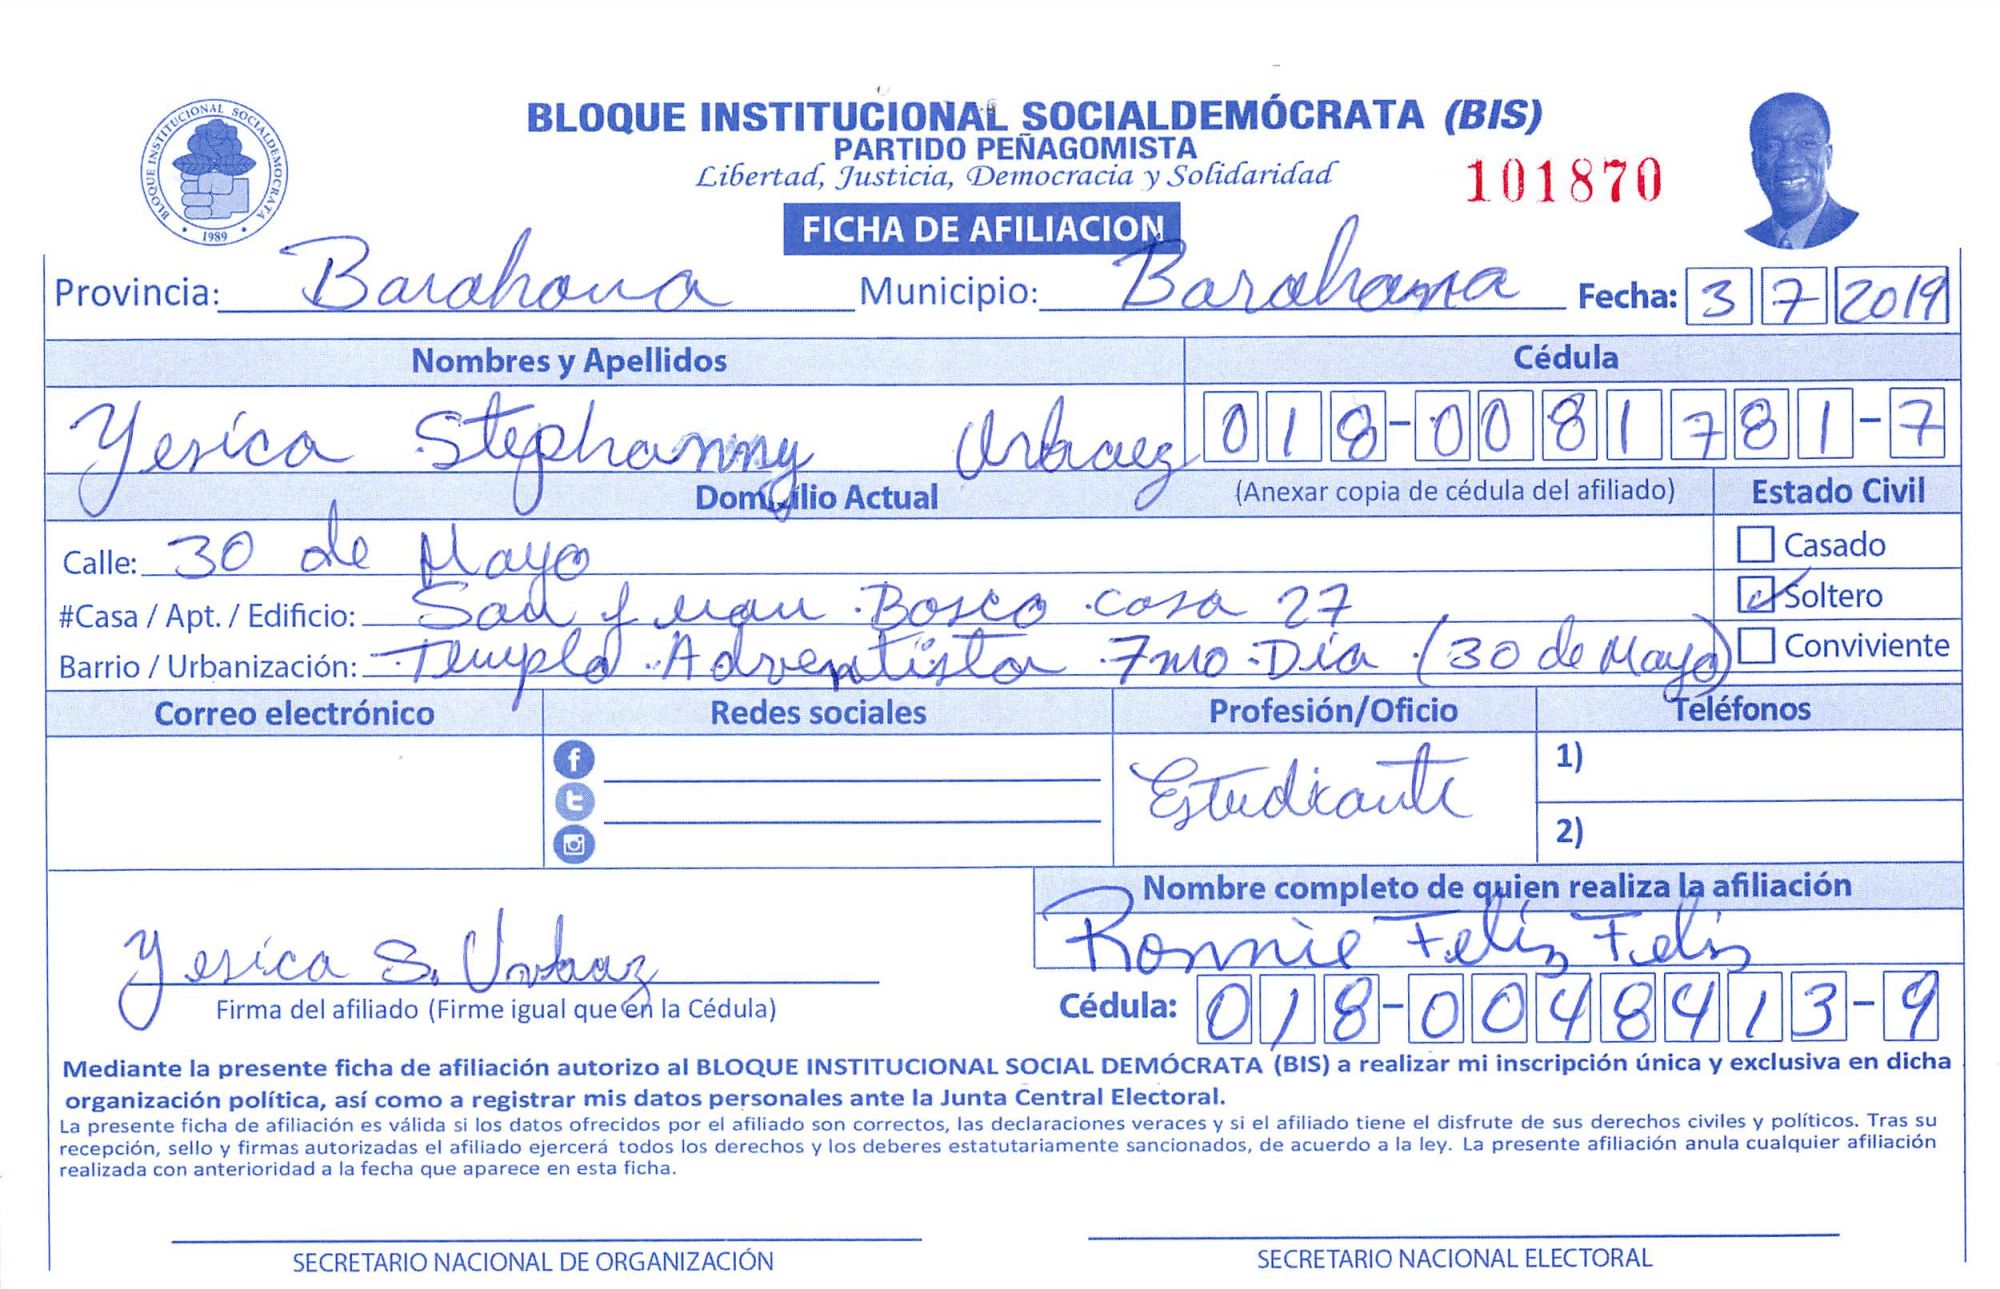 BLOQUE INSTITUCIONAL SOCIALDEMÓCRATA (BIS)
PARTIDO PEÑAGOMISTA
Libertad, Justicia, Democracia y Solidaridad
101870
BLOQUE INSTITUCIONAL SOCIALDEMOCRATA
1989
FICHA DE AFILIACION
Provincia: Barahona Municipio: Barahona Fecha: 3 7 2019
Nombres y Apellidos Cédula
Yesica Stephanny Urbaez 018-0081781-7
Domicilio Actual (Anexar copia de cédula del afiliado) Estado Civil
Calle: 30 de Mayo Casado
#Casa / Apt. / Edificio: San Juan Bosco casa 27 Soltero
Barrio / Urbanización: Templo Adventista 7mo Dia (30 de Mayo) Conviviente
Correo electrónico Redes sociales Profesión/Oficio Teléfonos
Estudiante
1)
2)
Nombre completo de quien realiza la afiliación
Ronnie Feliz Feliz
Yesica S. Urbaez
Firma del afiliado (Firme igual que en la Cédula)
Cédula: 018-0048413-9
Mediante la presente ficha de afiliación autorizo al BLOQUE INSTITUCIONAL SOCIAL DEMÓCRATA (BIS) a realizar mi inscripción única y exclusiva en dicha
organización política, así como a registrar mis datos personales ante la Junta Central Electoral.
La presente ficha de afiliación es válida si los datos ofrecidos por el afiliado son correctos, las declaraciones veraces y si el afiliado tiene el disfrute de sus derechos civiles y políticos. Tras su
recepción, sello y firmas autorizadas el afiliado ejercerá todos los derechos y los deberes estatutariamente sancionados, de acuerdo a la ley. La presente afiliación anula cualquier afiliación
realizada con anterioridad a la fecha que aparece en esta ficha.
SECRETARIO NACIONAL DE ORGANIZACIÓN SECRETARIO NACIONAL ELECTORAL